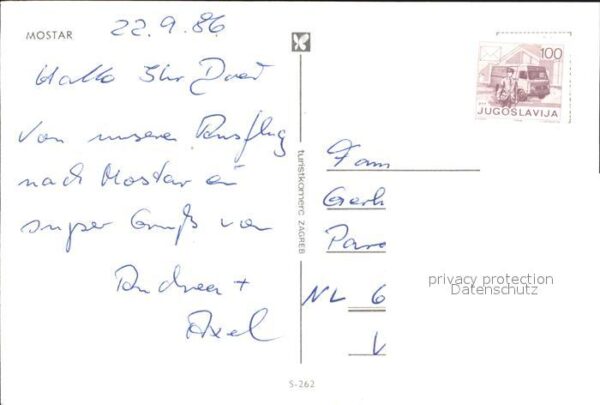 MOSTAR
22.9.86
Hallo Ihr Drei
Von unserem Ausflug
nach Mostar ein
super Gruß von
Andrea +
Axel
turistkomerc ZAGREB
100
JUGOSLAVIJA
Fam
Gerh
NL 6
V
privacy protection
Datenschutz
S-262